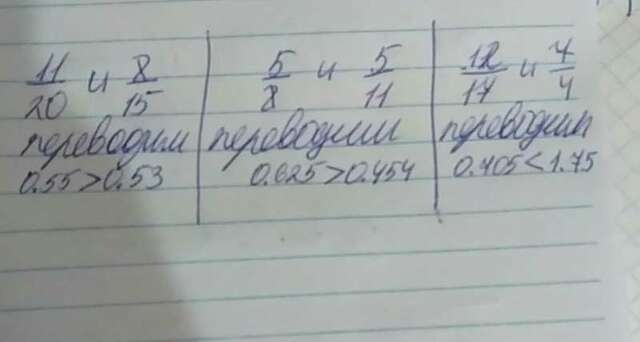 11/20 и 8/15
переводим
0.55>0.53
5/8 и 5/11
переводим
0.625>0.454
12/17 и 7/4
переводим
0.705<1.75